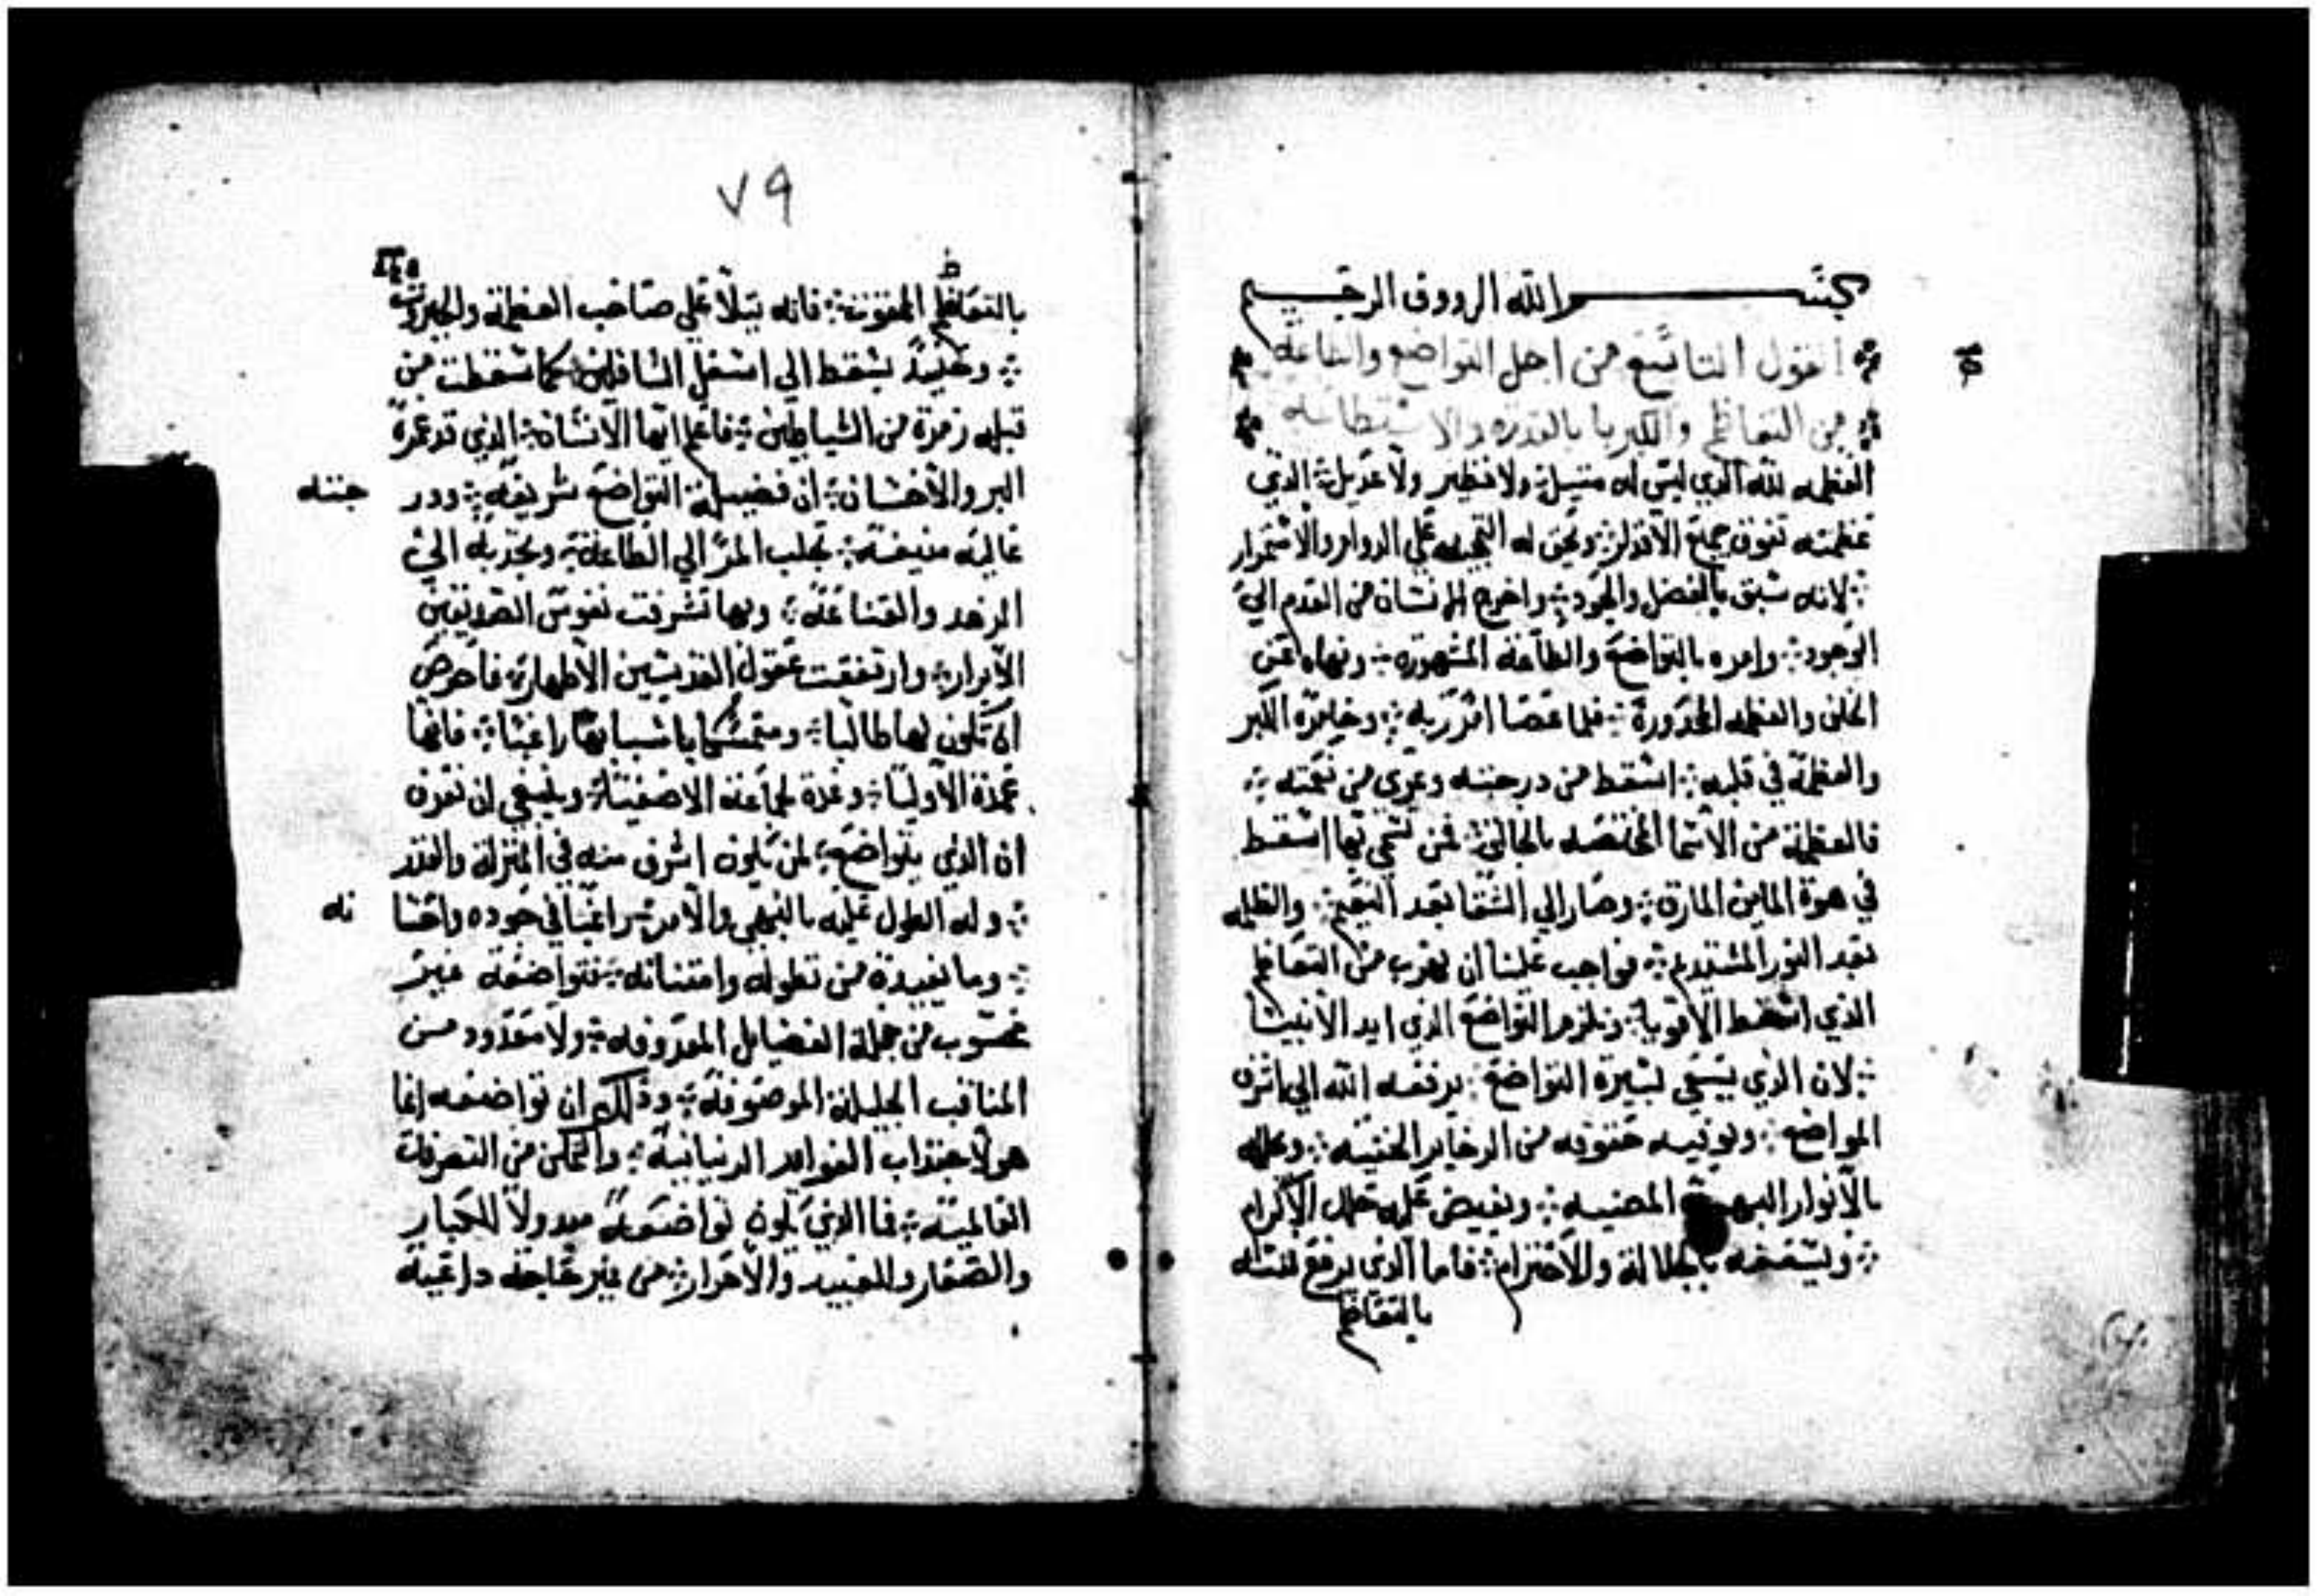 بسم الله الرووف الرحيم
القول التاسع من اجل التواضع والطاعة
من التعاظم والكبريا بالقدرة والاستطاعه
العظمه لله الذي ليس له مثيل ولا نظير ولا عديل الذي
عظمته تفوق جميع الاقدار ونحن له التمجيد علي الدوام والاستمرار
لانه سبق بالفضل والجود واخرج الانسان من العدم الي
الوجود وامره بالتواضع والطاعه المشهوره ونهاه عن
والعظمه المحدورة فلما عصا امر ربه وخامره الكبر
والعظمة في قلبه اسقط من درجته وعري من نعمته
فالعظمة من الاسما المختصه بالخالق فمن تسمي بها اسقط
في هوة المارق وصار الي الشقا بعد النعيم والظلمه
بعد النور المستديم فواجب علينا ان نهرب من التعاظم
الذي اسقط الاقويا ونلزم التواضع الذي ايد الانبيا
لان الذي يسعي بسيرة التواضع يرفعه الله الي اشرف
المواضع ويوفيه حقوقه من الدخاير الخفيه
بالانوار البهية المضيه ويفيض عليه حلل الاكرام
ويسعفه بالجلالة والاحترام فاما الذي يرفع نفسه
بالتعاظم
٧٩
بالتعاظم الممقوت فانه يتلا علي صاحب العظمة والجبروت
وحينيد يسقط الي اسفل السافلين كما سقطت من
قبله زمرة من الشياطين فاعلم ايها الانسان الذي قد غمرة
البر والاحسان ان فضيلة التواضع شريفه ودر جته
عاليه منيفة تجلب المر الي الطاعة وتجدبه الي
الزهد والقناعة وبها تشرفت نفوس الصديقين
الابرار وارتفعت عقول القديسين الاطهار فاحرص
ان تكون لها طالبا ومتمسكا باسبابها راغبا فانها
عمدة الاوليا وعدة لجماعة الاصفيا وينبغي ان تعرف
ان الذي يتواضع لمن يكون اشرف منه في المنزلة والقدر
وله الطول عليه بالنهي والامر راغبا في جوده واحسا نه
وما يفيدة من تطوله وامتنانه فتواضعه غير
محسوب من جملة الفضايل المعروفه ولا معدود من
المناقب الجليلة الموصوفة وذلك ان تواضعه انما
هو لاجتداب الفوايد الدنيانية والتمكن من التصرفات
العالمية فما الذي يكون تواضعه مبدولا للكبار
والصغار وللعبيد والاحرار من غير حاجة داعية